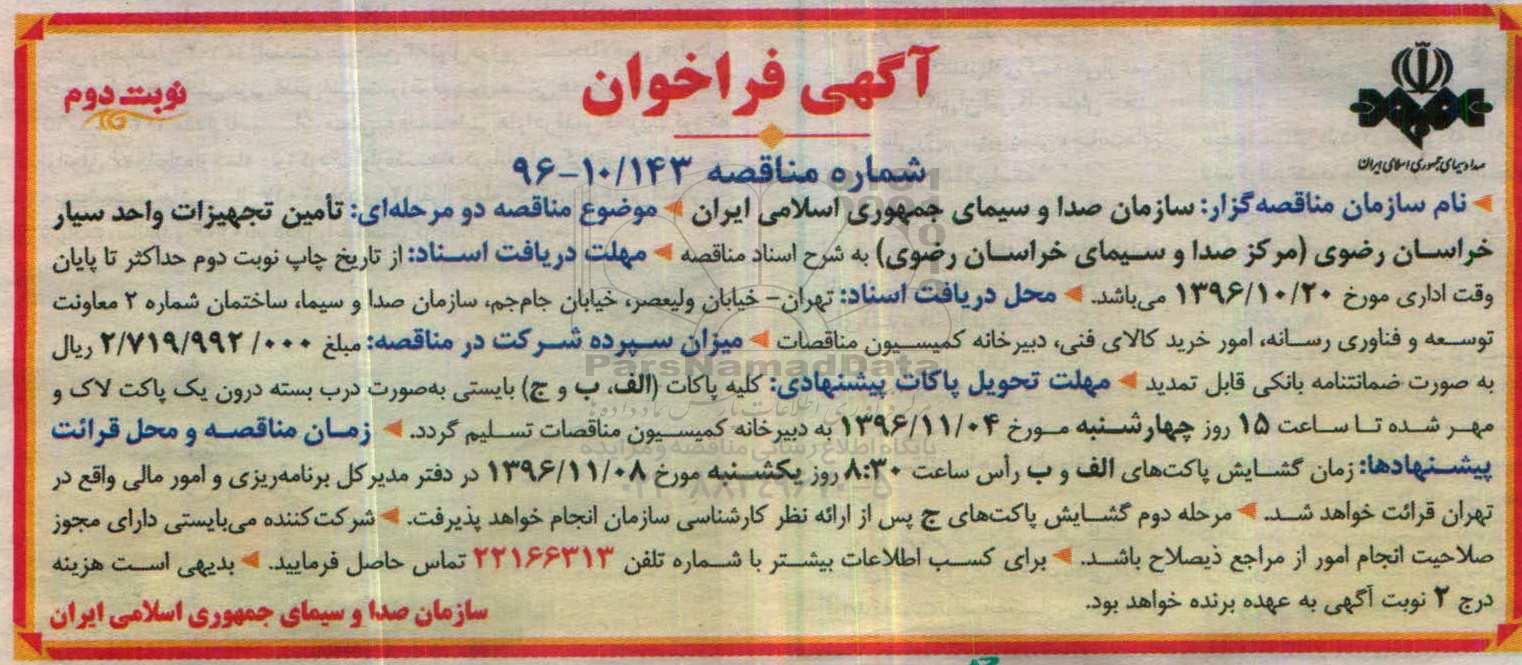 آگهی فراخوان
نوبت دوم
صدا و سیمای جمهوری اسلامی ایران
شماره مناقصه ۱۰/۱۴۳-۹۶
نام سازمان مناقصه‌گزار: سازمان صدا و سیمای جمهوری اسلامی ایران موضوع مناقصه دو مرحله‌ای: تأمین تجهیزات واحد سیار
خراسان رضوی (مرکز صدا و سیمای خراسان رضوی) به شرح اسناد مناقصه مهلت دریافت اسناد: از تاریخ چاپ نوبت دوم حداکثر تا پایان
وقت اداری مورخ ۱۳۹۶/۱۰/۲۰ می‌باشد. محل دریافت اسناد: تهران- خیابان ولیعصر، خیابان جام‌جم، سازمان صدا و سیما، ساختمان شماره ۲ معاونت
توسعه و فناوری رسانه، امور خرید کالای فنی، دبیرخانه کمیسیون مناقصات میزان سپرده شرکت در مناقصه: مبلغ ۲/۷۱۹/۹۹۲/۰۰۰ ریال
به صورت ضمانتنامه بانکی قابل تمدید مهلت تحویل پاکات پیشنهادی: کلیه پاکات (الف، ب و ج) بایستی به‌صورت درب بسته درون یک پاکت لاک و
مهر شده تا ساعت ۱۵ روز چهارشنبه مورخ ۱۳۹۶/۱۱/۰۴ به دبیرخانه کمیسیون مناقصات تسلیم گردد. زمان مناقصه و محل قرائت
پیشنهادها: زمان گشایش پاکت‌های الف و ب رأس ساعت ۸:۳۰ روز یکشنبه مورخ ۱۳۹۶/۱۱/۰۸ در دفتر مدیرکل برنامه‌ریزی و امور مالی واقع در
تهران قرائت خواهد شد. مرحله دوم گشایش پاکت‌های ج پس از ارائه نظر کارشناسی سازمان انجام خواهد پذیرفت. شرکت‌کننده می‌بایستی دارای مجوز
صلاحیت انجام امور از مراجع ذیصلاح باشد. برای کسب اطلاعات بیشتر با شماره تلفن ۲۲۱۶۶۳۱۳ تماس حاصل فرمایید. بدیهی است هزینه
درج ۲ نوبت آگهی به عهده برنده خواهد بود.
سازمان صدا و سیمای جمهوری اسلامی ایران
ParsNamadData
پایگاه اطلاع رسانی مناقصه و مزایده